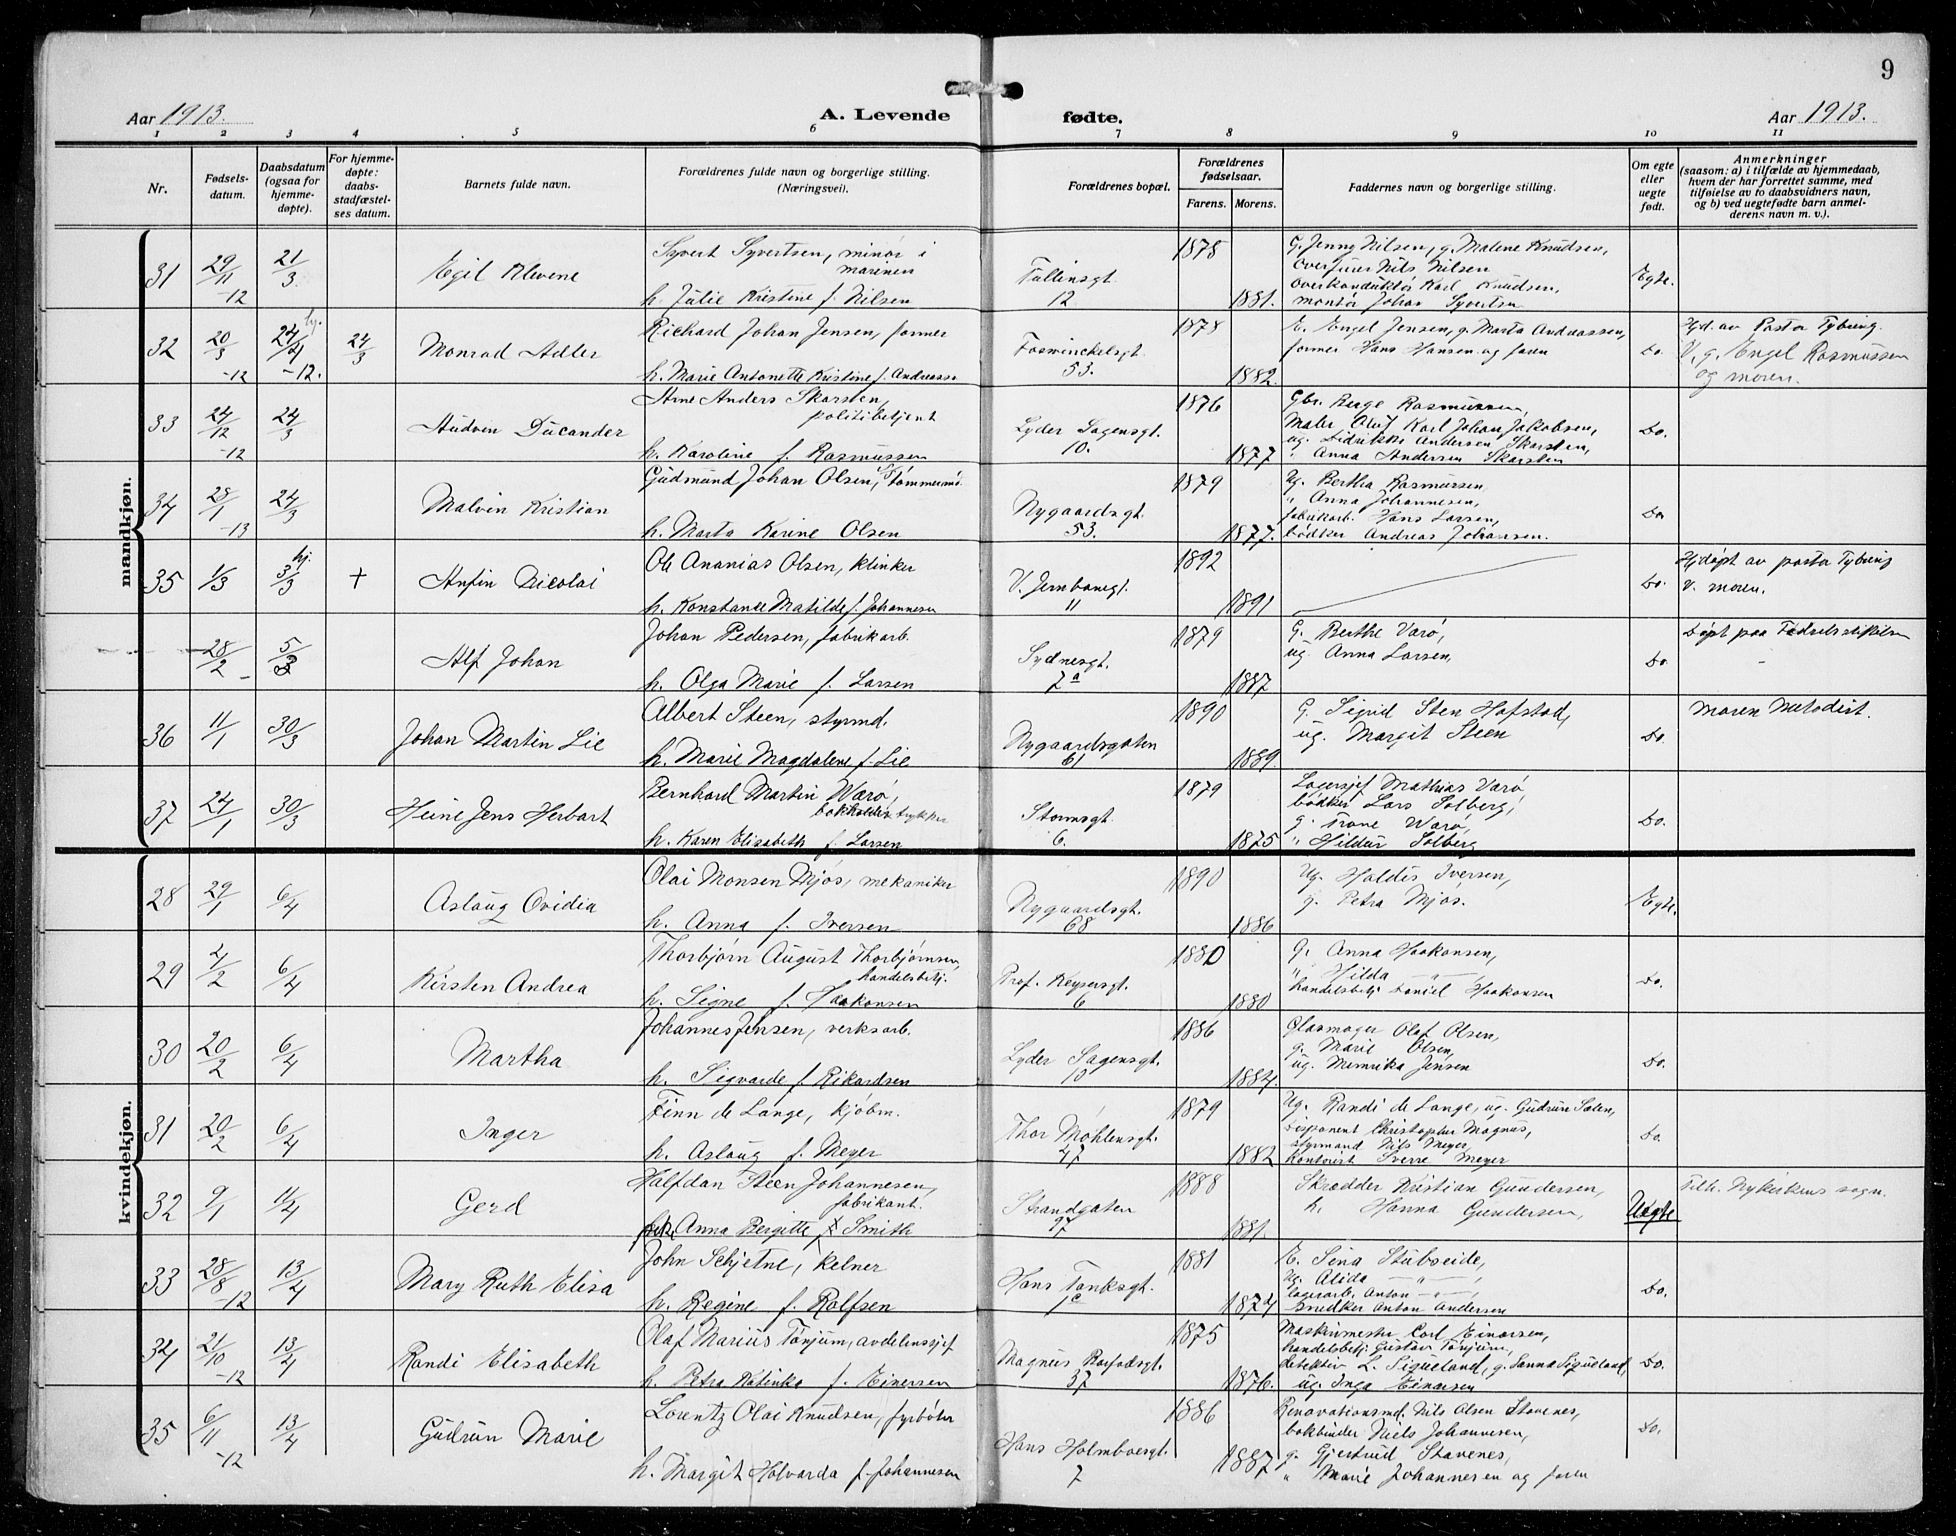 9
Aar 1913. A. Levende fødte. Aar 1913.
1 2 3 4 5 6 7 8 9 10 11
Nr.
Fødsels-
datum.
Daabsdatum
(ogsaa for
hjemme-
døpte).
For hjemme-
døpte:
daabs-
stadfæstel-
ses datum.
Barnets fulde navn.
Forældrenes fulde navn og borgerlige stilling.
(Næringsvei).
Forældrenes bopæl.
Forældrenes
fødselsaar.
Farens. Morens.
Faddernes navn og borgerlige stilling.
Om egte
eller
uegte
født.
Anmerkninger
(saasom: a) i tilfælde av hjemmedaab,
hvem der har forrettet samme, med
tilføielse av to daabsvidners navn,
og b) ved uegtefødte barn anmel-
derens navn m. v.).
mandkjøn.
31 29/11-12 21/3 Egil Klevene
Syvert Syvertsen, minør i
marenen
h. Julie Kristine f. Nilsen
Tullinsgt.
12
1878
1881.
G. Jenny Nilsen, g. Malene Knudsen,
Nils Nilsen
overkonduktør Karl Knudsen,
montør Johan Syvertsen
Egte.
32 20/3-12 hj. 24/21-12. 24/3 Monrad Adler
Richard Johan Jensen, former
h. Marie Antonette Kristine f. Andreass.
Foswinckelsgt.
53.
1878
1882.
E. Engel Jensen, g. Marta Andreassen,
former Hans Hansen og faren
Do.
Hjd. av Pastor Tybring.
V. g. Engel Rasmussen
og moren.
33 24/12-12 24/3 Audven Ducander
Arne Anders Skarsten,
politibetjent
h. Karoline f. Rasmussen
Lyder Sagensgt.
10.
1876
1877
Gbr. Berge Rasmussen,
Maler Oluf Karl Johan Jakobsen,
ug. Didrikke Andersen Skarsten,
" Anna Andersen Skarsten
Do.
34 28/1-13 24/3 Malvin Kristian
Gudmund Johan Olsen, Tømmerm.
h. Marta Karine Olsen
Nygaardsgt.
53.
1879
1877.
Ug. Bertha Rasmussen
" Anna Johannesen,
fabrikarb. Hans Larsen,
bødker Andreas Johansen.
Do
35 1/3 hj. 3/3 + Anfin Nicolai
Ole Ananias Olsen, klinker
h. Konstance Matilde f. Johannesen
V. Jernbanegt.
11
1892
1891
Do.
Hjdøpt av pastor Tybring
V. moren.
28/2 5/3 Alf Johan
Johan Pedersen, fabrikarb.
h. Olga Marie f. Larsen
Sydnesgt.
7a
1879
1887
G. Berthe Varø,
ug. Anna Larsen,
Do.
Døpt paa Fødselsstiftelsen
36 11/1 30/3 Johan Martin Lie
Albert Steen, styrmd.
h. Marie Magdalene f. Lie
Nygaardsgaten
61
1890
1889.
G. Sigrid Sten Hofstad,
ug. Margit Steen
Do.
Moren Metodist.
37 24/1 30/3 Heine Jens Herbart
Bernhard Martin Warø,
trykker
h. Karen Elisabeth f. Larsen
Stormsgt.
6.
1879
1875
Lagersjef Mathias Varø
bødker Lars Solberg,
g. Trone Warø,
" Hildur Solberg
Do.
kvindekjøn.
28 29/1 6/4 Aslaug Ovidia
Olai Monsen Mjøs, mekaniker
h. Anna f. Iversen
Nygaardsgt.
68
1890
1886
Ug. Haldis Iversen,
g. Petra Mjøs.
Egte.
29 2/2 6/4 Kirsten Andrea
Thorbjørn August Thorbjørnsen,
handelsbetj.
h. Signe f. Haakonsen
Prof. Keysersgt.
6
1880
1880
G. Anna Haakonsen,
" Hilda — " —,
handelsbetj. Daniel Haakonsen
Do.
30 20/2 6/4 Martha
Johannes Jensen, verksarb.
h. Sigvarde f. Rikardsen
Lyder Sagensgt.
10
1886
1884.
Glasmager Olaf Olsen,
g. Marie Olsen,
ug. Memrika Jensen
Do.
31 20/2 6/4 Inger
Finn de Lange, kjøbm.
h. Aslaug f. Meyer
Thor Møhlensgt.
47
1879
1882
Ug. Randi de Lange, ug. Gudrun Salen,
Disponent Christopher Magnus,
styrmand Nils Meyer,
Kontorist Sverre Meyer
Do.
32 9/1 11/4 Gerd
Halfdan Steen Johannesen,
fabrikant.
Anna Bergitte Smith
Strandgaten
97
1888
1881.
Skrædder Kristian Gundersen,
h. Hanna Gundersen,
Uegte
Tilh. Nykirkens sogn.
33 28/8-12 13/4 Mary Ruth Elisa
John Schjetne, kelner
h. Regine f. Rolfsen
Hans Tanksgt.
1c
1881
1874
E. Sina Stubseide,
Ug. Alida — " —,
lagerarb. Anton — " —,
snedker Anton Andersen
Do.
34 21/10-12 13/4 Randi Elisabeth
Olaf Marius Tønjum, avdelinssjef
h. Petra Katinka f. Einersen
Magnus Barfodsgt.
37
1875
1876.
Maskinmester Carl Einarsen,
handelsbetj. Gustav Tønjum,
detektiv L. Sigueland, g. Sanna Sigueland,
ug. Inga Einarsen
Do.
35 6/11-12 13/4 Gudrun Marie
Lorentz Olai Knudsen, fyrbøter
h. Margit Halvarda f. Johannesen
Hans Holmboesgt.
7
1886
1887
Renovationsmd. Nils Olsen Stavenes,
bokbinder Niels Johannesen,
g. Gjertrud Stavenes,
" Marie Johannesen og faren
Do.